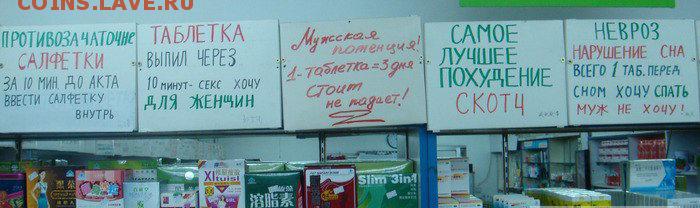 COINS.LAVE.RU
ПРОТИВОЗАЧАТОЧНЕ
САЛФЕТКИ
ЗА 10 МИН ДО АКТА
ВВЕСТИ САЛФЕТКУ
ВНУТРЬ
ТАБЛЕТКА
ВЫПИЛ ЧЕРЕЗ
10 МИНУТ- СЕКС ХОЧУ
ДЛЯ ЖЕНЩИН
Мужская
потенция!
1- таблетка = 3 дня
стоит
не падает!
САМОЕ
ЛУЧШЕЕ
ПОХУДЕНИЕ
СКОТЧ
НЕВРОЗ
НАРУШЕНИЕ СНА
ВСЕГО 1 ТАБ. ПЕРЕД
СНОМ ХОЧУ СПАТЬ
МУЖ НЕ ХОЧУ!
Xituisi
溶脂素
Slim 3in1